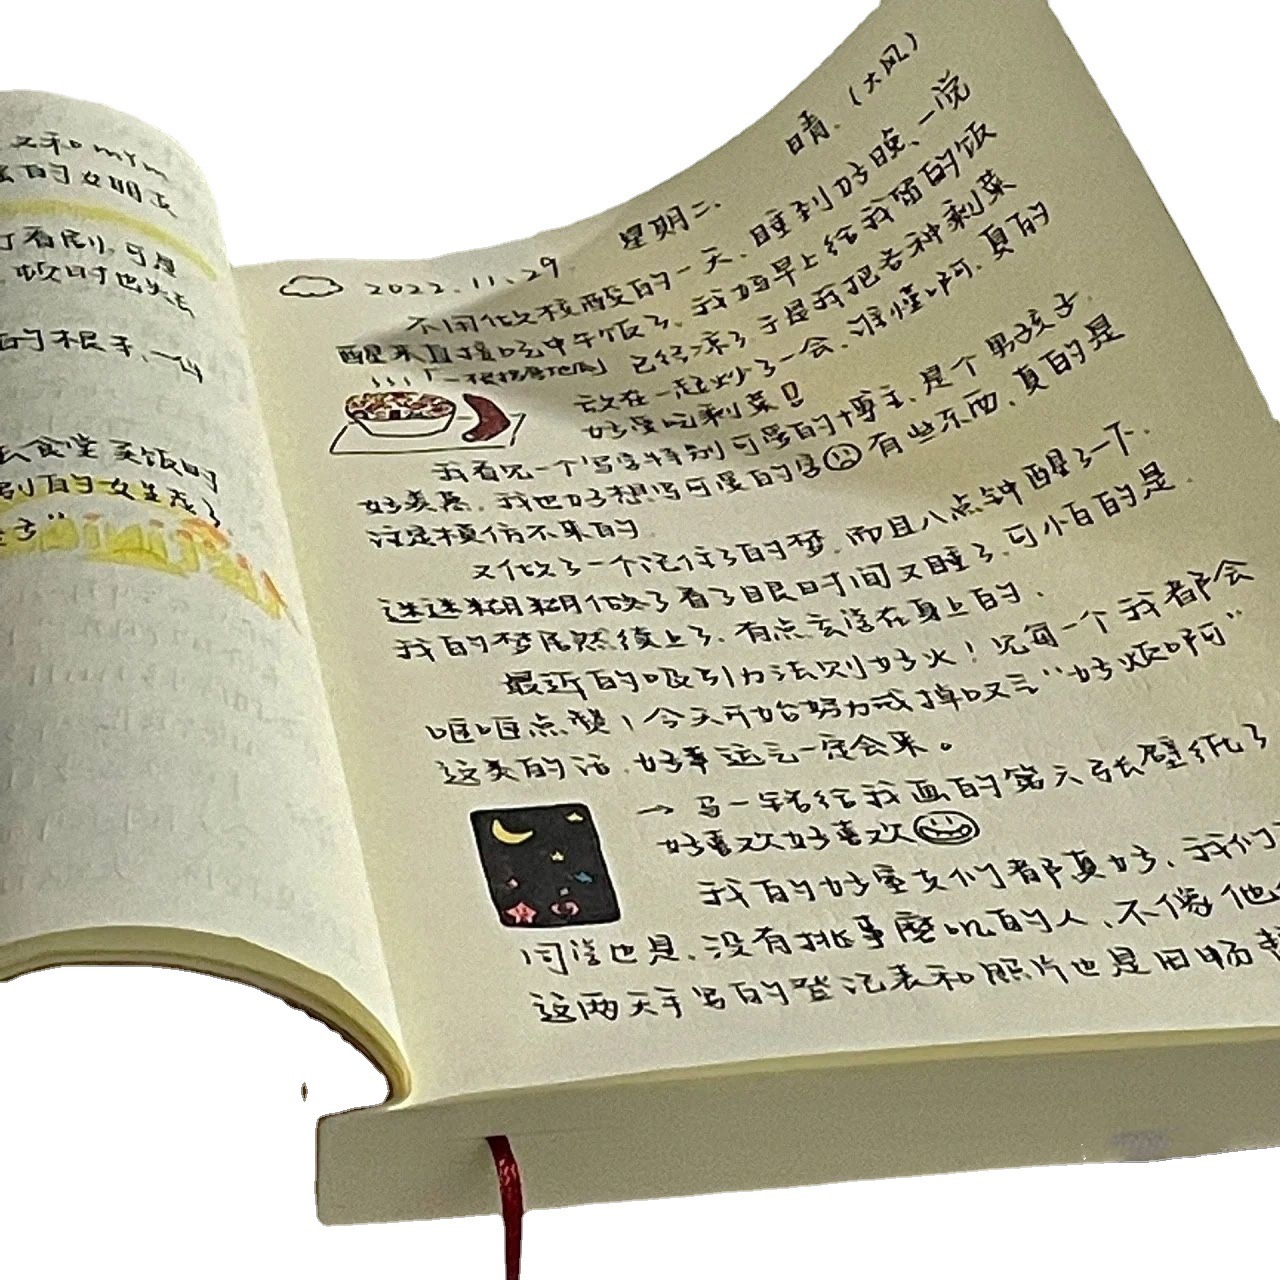 又和mym
的女朋友
看剧,可是
顿时也
的根号、一
去食堂买饭时
别的女生
2022.11.29. 星期二. 晴.(大风)
不用做核酸的一天、睡到好晚、一觉
醒来直接吃中午饭了、我妈早上给我留的饭
「一根烤地瓜」已经凉了于是我把各种剩菜
放在一起炒了一会、谁懂啊、真的
好爱吃剩菜!
我看见一个写字特别可爱的博主、是个男孩子
好羡慕、我也好想写可爱的字 有些东西、真的是
注定模仿不来的.
又做了一个记住了的梦,而且八点钟醒了一下.
迷迷糊糊做了看了眼时间又睡了,可怕的是
我的梦居然续上了.有点玄学在身上的.
最近的吸引力法则好火!见每一个我都会
哐哐点赞!今天开始努力戒掉叹气"好烦啊"
这类的话,好幸运气一定会来。
→马一铭给我画的第六张壁纸了
好喜欢好喜欢
我的好室友们都真好、我们
同学也是、没有挑事磨叽的人、不像他
这两天手写的登记表和照片也是旧杨